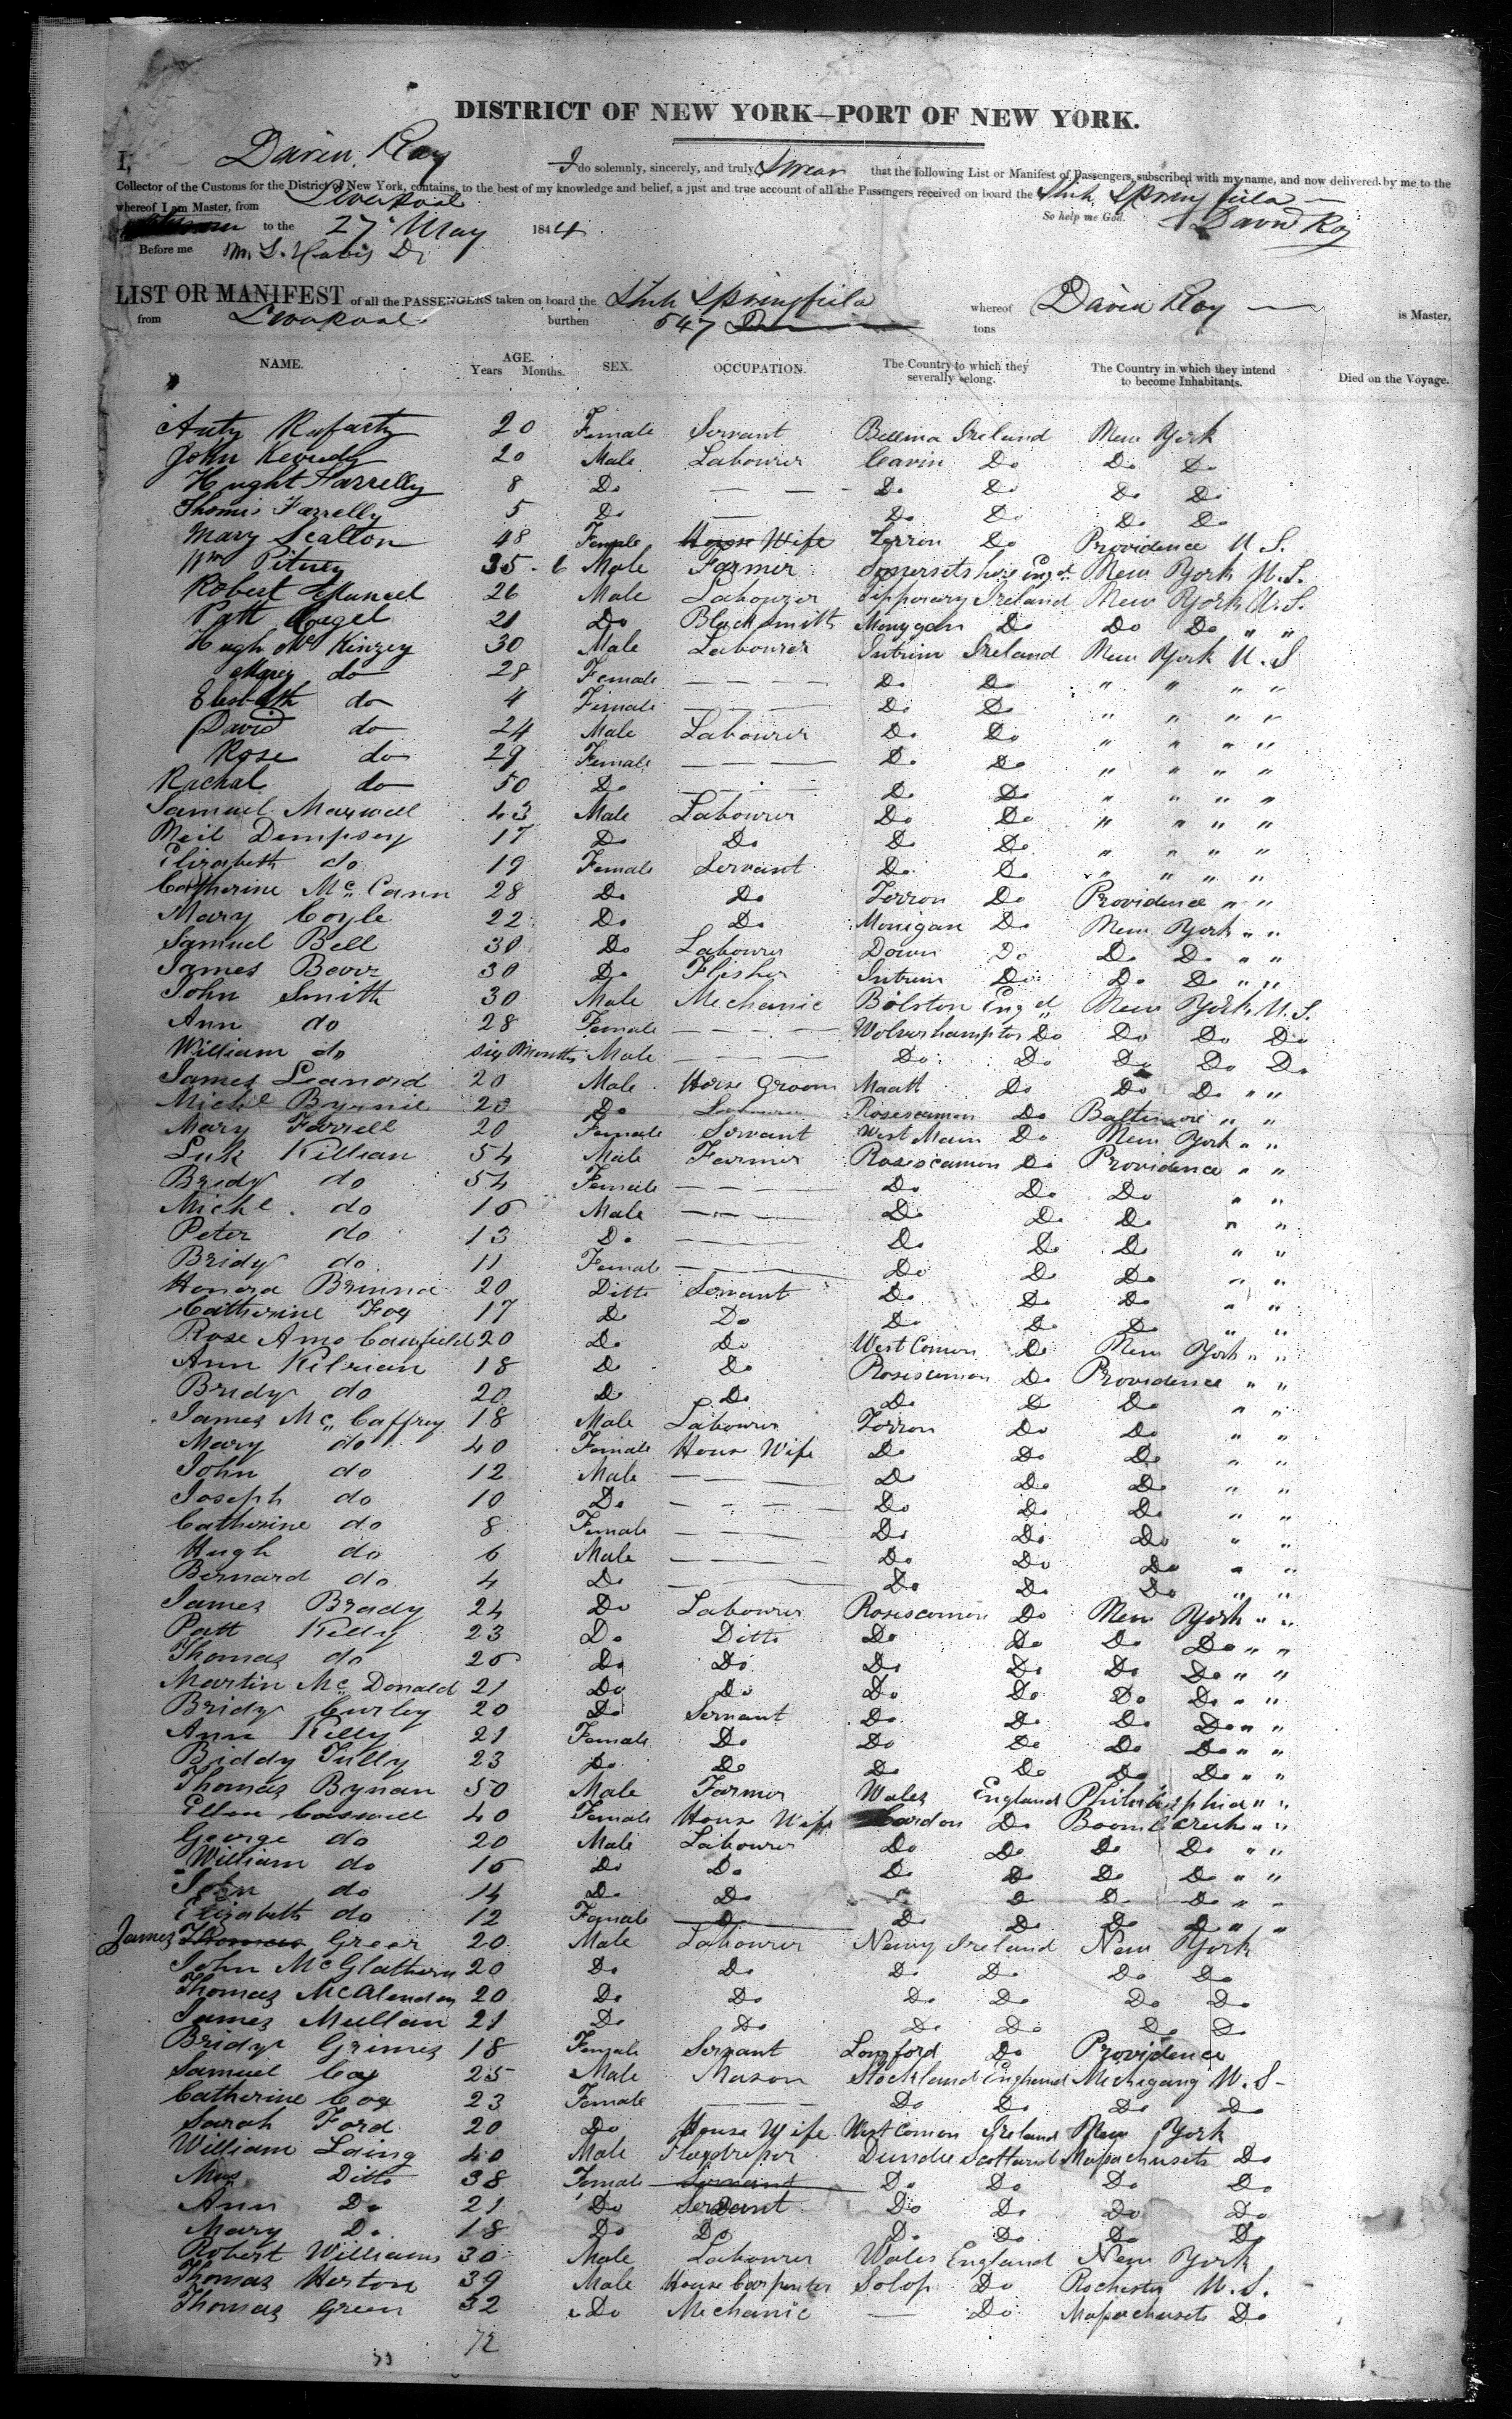 DISTRICT OF NEW YORK—PORT OF NEW YORK.
I, David Roy I do solemnly, sincerely, and truly Swear that the following List or Manifest of Passengers, subscribed with my name, and now delivered by me to the
Collector of the Customs for the District of New York, contains, to the best of my knowledge and belief, a just and true account of all the Passengers received on board the Ship Springfield
whereof I am Master, from Liverpool So help me God.
to the 27 May 1844 David Roy
Before me
LIST OR MANIFEST of all the PASSENGERS taken on board the Ship Springfield whereof David Roy is Master,
from Liverpool burthen 547 tons
NAME. AGE. Years Months. SEX. OCCUPATION. The Country to which they severally belong. The Country in which they intend to become Inhabitants. Died on the Voyage.
20 Female Servant Ireland New York
John 20 Male Labourer Cavin Do Do Do
Hught Farrelly 8 Do — — Do Do Do Do
Thomis Farrelly 5 Do — Do Do Do Do
Mary Scallon 48 Female House Wife Do Providence U.S.
Wm Pitney 35 - 6 Male Farmer Somersetshire Engd New York U.S.
Robert 26 Male Labourer Tipporary Ireland New York U.S.
Patt 21 Do Blacksmith Monygan Do Do Do " "
Hugh Mc Kinzey 30 Male Labourer Intrim Ireland New York U.S
Marey do 28 Female — — — Do Do " " " "
do 4 Female — — — Do Do " " " "
David do 24 Male Labourer Do Do " " " "
Rose do 29 Female — — — Do Do " " " "
Rachal do 50 Do — — — Do Do " " " "
Samuel Maxwell 43 Male Labourer Do Do " " " "
Neil Dempsey 17 Do Do Do Do " " " "
Elizabeth do 19 Female Servant Do Do " " " "
Catherine Mc Cann 28 Do Do Do Providence " "
Mary Coyle 22 Do Do Monigan Do New York " "
Samuel Bell 30 Do Labourer Down Do Do Do " "
James 30 Do Flesher Intrim Do Do Do " "
John Smith 30 Male Mechanic Bilston Engd New York U.S.
Ann do 28 Female — — — Wolverhampton Do Do Do Do
William do six Months Male — — — Do Do Do Do Do
James Leanord 20 Male Horse Groom Maath Do Do Do " "
Michl Byrnie 20 Do Labourer Rosescamon Do Baltimore " "
Mary Farrell 20 Female Servant West Main Do New York " "
Luk Killian 54 Male Farmer Rosescamon Do Providence " "
Bridy do 54 Female — — — Do Do Do " "
Michl do 16 Male — — — Do Do Do " "
Peter do 13 Do — — Do Do Do " "
Bridy do 11 Female — — Do Do Do " "
Honora 20 Ditto Servant Do Do Do " "
Catherine Foy 17 Do Do Do Do Do " "
Rose Cawfield 20 Do Do West Comon Do New York " "
Ann 18 Do Do Rosiscamon Do Providence " "
Bridy do 20 Do Do Do Do Do " "
James Mc Caffrey 18 Male Labourer Do Do " "
Mary do 40 Female House Wife Do Do Do " "
John do 12 Male — — — Do Do Do " "
Joseph do 10 Do — — — Do Do Do " "
Catherine do 8 Female — — Do Do Do " "
Hugh do 6 Male — — Do Do Do " "
Bernard do 4 Do — — Do Do Do " "
James Brady 24 Do Labourer Rosiscomon Do New York " "
Patt Kelly 23 Do Ditto Do Do Do Do " "
Thomas do 26 Do Do Do Do Do Do " "
Martin Mc Donald 21 Do Do Do Do Do Do " "
Bridy Curley 20 Do Servant Do Do Do Do " "
Ann Kelly 21 Female Do Do Do Do Do " "
Biddy Tully 23 Do Do Do Do Do Do " "
Thomas Bynan 50 Male Farmer Wales England Philadelphia " "
Ellen Caswell 40 Female House Wife Do " "
George do 20 Male Labourer Do Do Do Do " "
William do 16 Do Do Do Do Do Do " "
John do 14 Do Do Do Do Do " "
Elizabeth do 12 Female Do Do Do Do Do " "
James Thomas Greer 20 Male Labourer Newry Ireland New York
John 20 Do Do Do Do Do Do
Thomas 20 Do Do Do Do Do Do
James Mullan 21 Do Do Do Do Do Do
Bridy Grimes 18 Female Servant Longford Do Providence
Samuel Cox 25 Male Mason England Michigang U.S-
Catherine Cox 23 Female — — Do Do Do Do
Sarah Ford 20 Do House Wife West Comon Ireland New York
William Laing 40 Male Flaxdreper Dundee Scotland Massachusets Do
Mrs Ditto 38 Female Servant Do Do Do Do
Ann Do 21 Do Servant Do Do Do Do
Mary Do 18 Do Do Do Do Do Do
Robert Williams 30 Male Labourer Wales England New York
Thomas Horton 39 Male House Carpenter Solop Do Rochester U.S.
Thomas Green 32 Do Mechanic — Do Massachusets Do
72